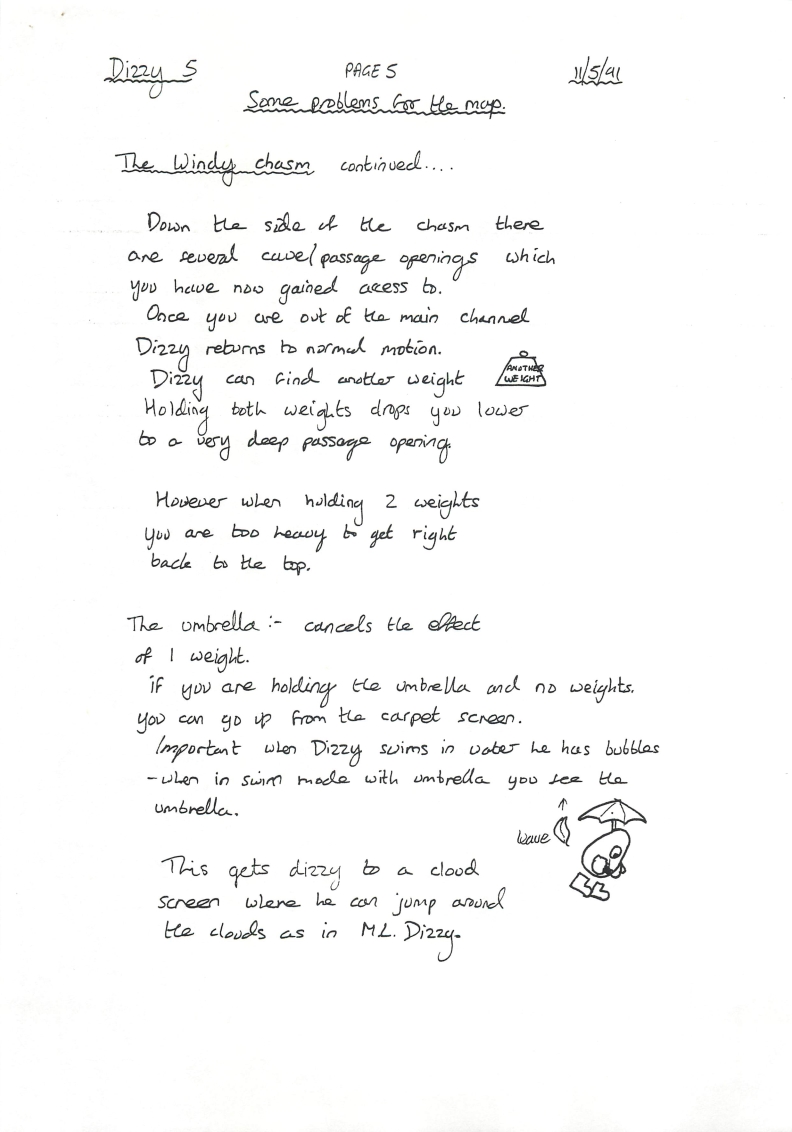 Dizzy 5 PAGE 5 11/5/91
Some problems for the map.
The Windy chasm continued....
Down the side of the chasm there
are several cave/passage openings which
you have now gained access to.
Once you are out of the main channel
Dizzy returns to normal motion.
Dizzy can find another weight
ANOTHER
WEIGHT
Holding both weights drops you lower
to a very deep passage opening.
However when holding 2 weights
you are too heavy to get right
back to the top.
The umbrella :- cancels the effect
of 1 weight.
if you are holding the umbrella and no weights.
you can go up from the carpet screen.
Important when Dizzy swims in water he has bubbles
- when in swim mode with umbrella you see the
umbrella.
wave
This gets dizzy to a cloud
screen where he can jump around
the clouds as in M.L. Dizzy.